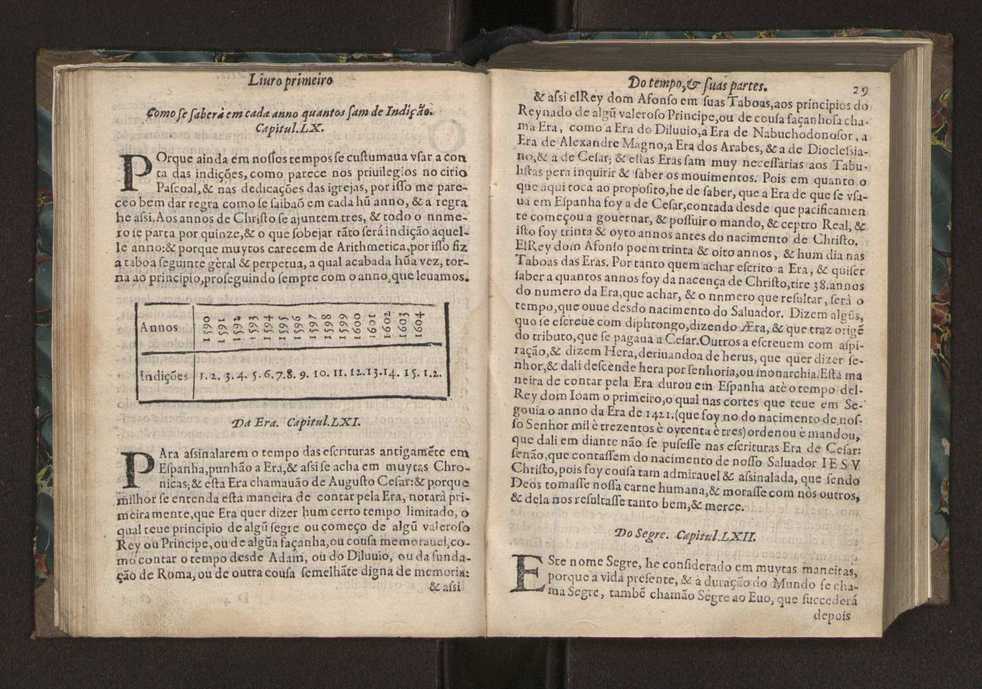 Liuro primeiro
Como se saberà em cada anno quantos sam de Indição.
Capitul. LX.
POrque ainda em nossos tempos se custumaua vsar a con
ta das indições, como parece nos priuilegios no citio
Pascoal, & nas dedicações das igrejas, por isso me pare-
ceo bem dar regra como se saibaõ em cada hũ anno, & a regra
he assi, Aos annos de Christo se ajuntem tres, & todo o nnme-
ro se parta por quinze, & o que sobejar tãto será indição aquel-
le anno: & porque muytos carecem de Arithmetica, por isso fiz
a taboa seguinte gèral & perpetua, a qual acabada hũa vez, tor-
na ao principio, proseguindo sempre com o anno, que leuamos.
Annos 1590 1591 1592 1593 1594 1595 1596 1597 1598 1599 1600 1601 1602 1603 1604
Indições 1. 2. 3. 4. 5. 6. 7. 8. 9. 10. 11. 12. 13. 14. 15. 1. 2.
Da Era. Capitul. LXI.
PAra assinalarem o tempo das escrituras antigamẽte em
Espanha, punhão a Era, & assi se acha em muytas Chro-
nicas; & esta Era chamauão de Augusto Cesar: & porque
milhor se entenda esta maneira de contar pela Era, notarà pri-
meiramente, que Era quer dizer hum certo tempo limitado, o
qual teue principio de algũ segre ou começo de algũ valeroso
Rey ou Principe, ou de algũa façanha, ou cousa memorauel, co-
mo contar o tempo desde Adam, ou do Diluuio, ou da funda-
ção de Roma, ou de outra cousa semelhãte digna de memoria:
& assi
Do tempo, & suas partes.
29
& assi elRey dom Afonso em suas Taboas, aos principios do
Reynado de algũ valeroso Principe, ou de cousa façanhosa cha-
ma Era, como a Era do Diluuio, a Era de Nabuchodonosor, a
Era de Alexandre Magno, a Era dos Arabes, & a de Dioclesia-
no, & a de Cesar; & estas Eras sam muy necessarias aos Tabu-
listas pera inquirir & saber os mouimentos. Pois em quanto o
que aqui toca ao proposito, he de saber, que a Era de que se vsa-
ua em Espanha foy a de Cesar, contada desde que pacificamen
te começou a gouernar, & possuir o mando, & ceptro Real, &
isto foy trinta & oyto annos antes do nacimento de Christo.
ElRey dom Afonso poem trinta & oito annos, & hum dia nas
Taboas das Eras. Por tanto quem achar escrito a Era, & quiser
saber a quantos annos foy da nacença de Christo, tire 38. annos
do numero da Era, que achar, & o nnmero que resultar, serà o
tempo, que ouue desdo nacimento do Saluador. Dizem algũs,
que se escreue com diphtongo, dizendo Æra, & que traz origẽ
do tributo, que se pagaua a Cesar. Outros a escreuem com aspi-
ração, & dizem Hera, deriuandoa de herus, que quer dizer se-
nhor, & dali descende hera por senhoria, ou monarchia. Esta ma
neira de contar pela Era durou em Espanha atè o tempo del-
Rey dom Ioam o primeiro, o qual nas cortes que teue em Se-
gouia o anno da Era de 1421. (que foy no do nacimento de nos-
so Senhor mil è trezentos è oytenta è tres) ordenou è mandou,
que dali em diante não se pusesse nas escrituras Era de Cesar:
senão, que contassem do nacimento de nosso Saluador IESV
Christo, pois foy cousa tam admirauel & assinalada, que sendo
Deos tomasse nossa carne humana, & morasse com nòs outros,
& dela nos resultasse tanto bem, & merce.
Do Segre. Capitul. LXII.
ESte nome Segre, he considerado em muytas maneiras,
porque a vida presente, & a duração do Mundo se cha-
ma Segre, tambẽ chamão Segre ao Euo, que succederà
depois